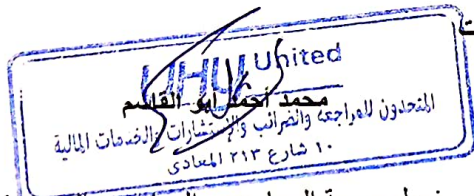 UHY United
محمد أحمد أبو القاسم
المتحدون للمراجعة والضرائب والإستشارات والخدمات المالية
١٠ شارع ٢١٣ المعادى